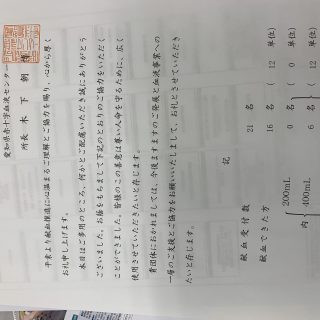 愛知県赤十字血液センター
所長 木下 朝博
平素より献血推進に心温まるご理解とご協力を賜り、心から厚く
お礼申し上げます。
本日はご多用のところ、何かとご配慮いただき誠にありがとう
ございました。お蔭をもちまして下記のとおりのご協力をいただく
ことができました。皆様のこの善意は尊い人命を守るために、広く
使用させていただきたいと存じます。
貴団体におかれましては、今後ますますのご発展と血液事業への
一層のご支援とご協力をお願いいたしまして、お礼とさせていただき
たいと存じます。
記
献血受付数 21 名
献血できた方 16 名 ( 12 単位)
内 200mL 0 名 ( 0 単位)
400mL 6 名 ( 12 単位)